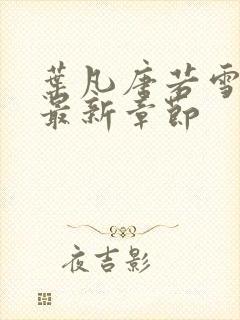 葉凡唐若雪
最新章節
夜吉影